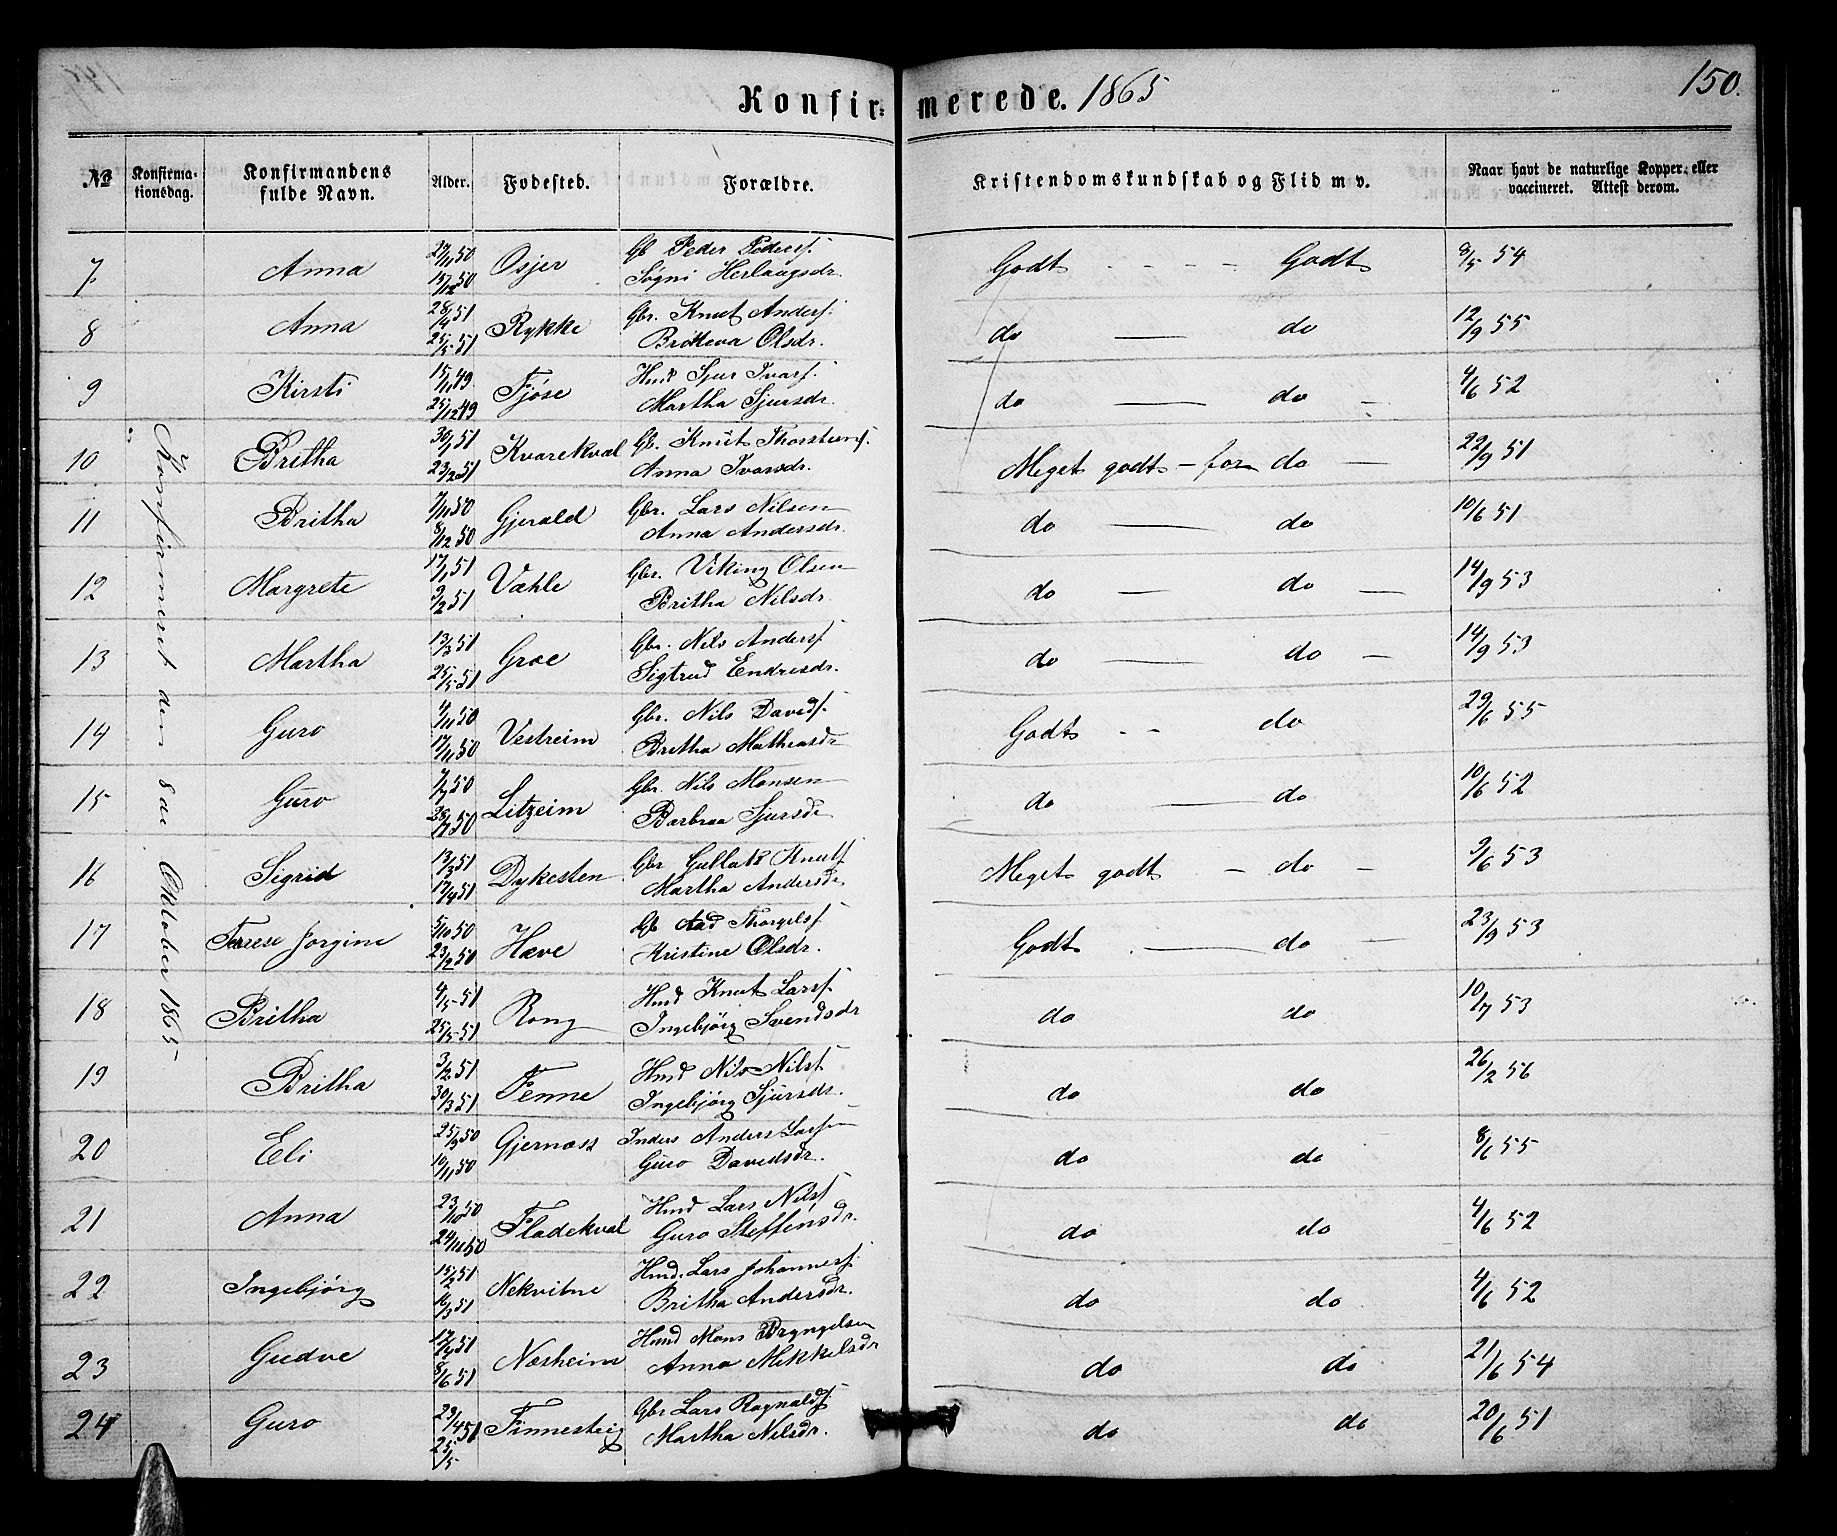 Konfirmerede. 1865
150.
№ Konfirmationsdag. Konfirmandens fulde Navn. Alder. Fodested. Forældre. Kristendomskundskab og Flid m v. Naar havt de naturlige Kopper eller vaccineret. Attest derom.
Konfirmeret den 8de Oktober 1865
7 Anna 27/11 50 Osjer Gb Peder Peders. Godt - - - - Godt 9/5 54
15/12 50 Søgni Herlaugsdr.
8 Anna 28/4 51 Rykke Gbr. Knut Anders. do — do 12/9 55
25/5 51 Briteva Olsdr.
9 Kirsti 15/11 49 Fjøse Hmd Sjur Ivars. do — do - 4/6 52
25/12 49 Martha Sjursdr.
10 Britha 30/1 51 Kvarekval Gb. Knut Thorstens. Meget godt - for do — 22/9 51
23/2 51 Anna Ivarsdr.
11 Britha 7/11 50 Gjerald Gbr. Lars Nilsen do — do 10/6 51
8/12 50 Anna Andersdr.
12 Margrete 17/1 51 Væhle Gbr. Viking Olsen do — do — 14/9 53
9/2 51 Britha Nilsdr.
13 Martha 13/3 51 Groe Gbr. Nils Anders. do — do - 14/9 53
25/5 51 Sigtrud Endresdr.
14 Guro 4/11 50 Vestreim Gbr. Nils Davids. Godt - - do 29/6 55
17/11 50 Britha Mathiasdr
15 Guro 7/7 50 Litzeim Gbr. Nils Monsen do — do 10/6 52
28/7 50 Barbraa Sjursdr
16 Sigrid 13/3 51 Dykesten Gbr Gullak Knuts. Meget godt - do - 9/6 53
17/4 51 Martha Andersdr
17 Terese Jorgine 5/10 50 Hæve Gb Aad Thorgels. Godt — do — 23/9 53
23/2 50 Kristine Olsdr.
18 Britha 4/5 51 Rong Hmd Knut Lars. do do 10/7 53
25/5 51 Ingebjörg Svendsdr
19 Britha 3/2 51 Fenne Hmd Nils Nils. do do 26/2 56
30/3 51 Ingebjörg Sjursdr.
20 Eli 25/9 50 Gjernæss Inders Anders Larsen do do 8/6 55
10/11 50 Guro Davidsdr.
21 Anna 23/10 50 Fladekval Hmd Lars Nils. do do 4/6 52
24/11 50 Guro Steffensdr.
22 Ingebjörg 15/2 51 Nekvitne Hmd. Lars Johannes. do do 4/6 52
16/3 51 Britha Andersdr.
23 Gudve 17/4 51 Næsheim Hmd Mons Bryngelsen do do 21/6 54
8/6 51 Anna Mikkelsdr
24 Guro 29/4 51 Finnesteig Gbr Lars Ragnalds. do do 20/6 51
25/5 Martha Nilsdr.